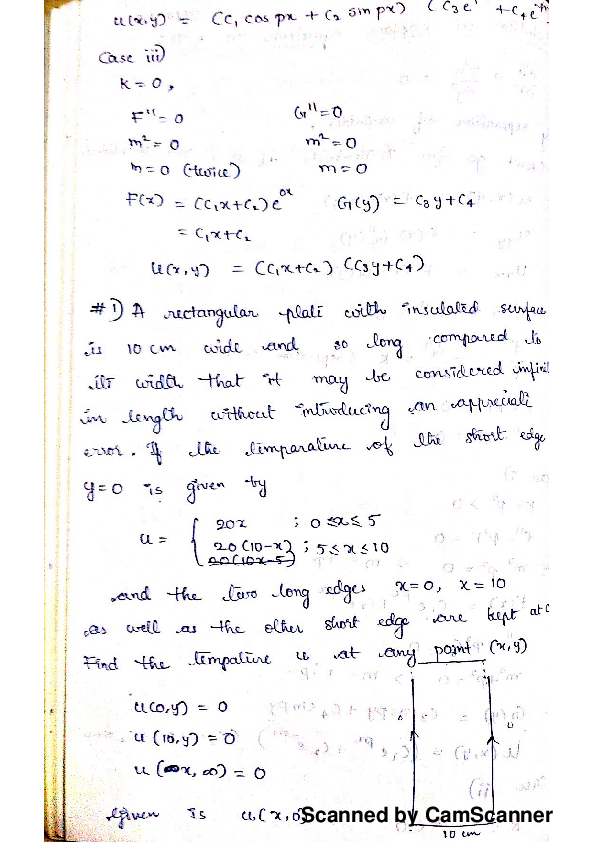 u(x,y) = (C₁ cos px + C₂ sin px) (C₃e + C₄e
Case iii)
K = 0,
F'' = 0 G'' = 0
m² = 0 m² = 0
m = 0 (twice) m = 0
F(x) = (C₁x+C₂)e⁰ˣ G(y) = C₃y+C₄
= C₁x+C₂
u(x,y) = (C₁x+C₂) (C₃y+C₄)
# 1) A rectangular plate with insulated surface
is 10 cm wide and so long compared to
its width that it may be considered infinit
in length without introducing an appreciali
error. If the temparature of the short edge
y=0 is given by
u = { 20x ; 0≤x≤5
20(10-x) ; 5≤x≤10
20(10x-5)
and the two long edges x=0, x=10
as well as the other short edge are kept at 0
Find the tempature u at any point (x,y)
u(0,y) = 0
u(10,y) = 0
u(x,∞) = 0
Given is u(x,0)
10 cm
Scanned by CamScanner